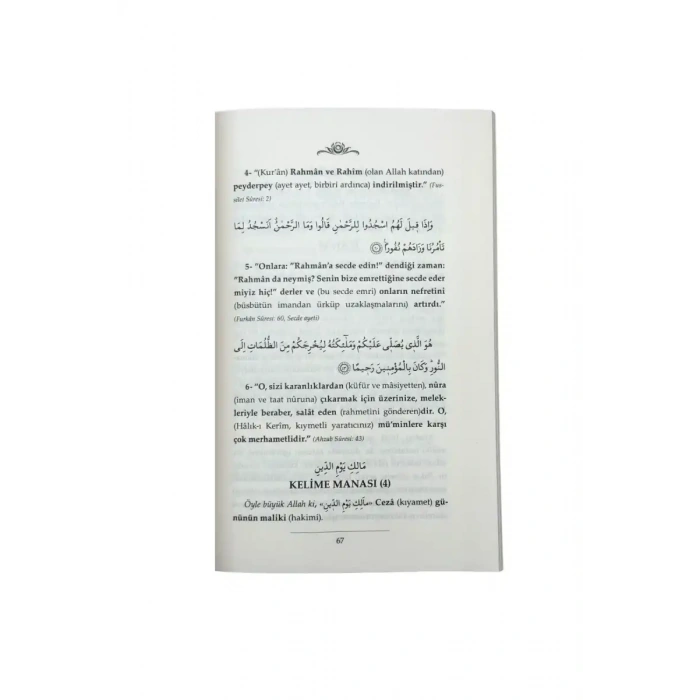 4- “(Kur’ân) Rahmân ve Rahim (olan Allah katından)
peyderpey (ayet ayet, birbiri ardınca) indirilmiştir.” (Fus-
silet Sûresi: 2)
وَإِذَا قِيلَ لَهُمُ اسْجُدُوا لِلرَّحْمٰنِ قَالُوا وَمَا الرَّحْمٰنُ اَنَسْجُدُ لِمَا
تَأْمُرُنَا وَزَادَهُمْ نُفُورًا ﴿٦٠﴾
5- “Onlara: “Rahmân’a secde edin!” dendiği zaman:
“Rahmân da neymiş? Senin bize emrettiğine secde eder
miyiz hiç!” derler ve (bu secde emri) onların nefretini
(büsbütün imandan ürküp uzaklaşmalarını) artırdı.”
(Furkân Sûresi: 60, Secde ayeti)
هُوَ الَّذِي يُصَلِّي عَلَيْكُمْ وَمَلٰٓئِكَتُهُ لِيُخْرِجَكُمْ مِنَ الظُّلُمَاتِ اِلَى
النُّورِ وَكَانَ بِالْمُؤْمِنِينَ رَحِيمًا ﴿٤٣﴾
6- “O, sizi karanlıklardan (küfür ve mâsiyetten), nûra
(iman ve taat nûruna) çıkarmak için üzerinize, melek-
leriyle beraber, salât eden (rahmetini gönderen)dir. O,
(Hâlık-ı Kerîm, kıymetli yaratıcınız) mü’minlere karşı
çok merhametlidir.” (Ahzab Sûresi: 43)
مَالِكِ يَوْمِ الدِّينِ
KELİME MANASI (4)
Öyle büyük Allah ki, «مَالِكِ يَوْمِ الدِّينِ» Cezâ (kıyamet) gü-
nünün maliki (hakimi).
67